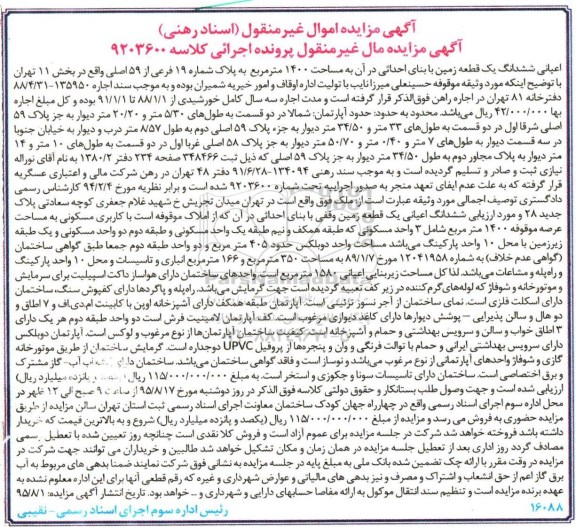 آگهی مزایده اموال غیرمنقول (اسناد رهنی)
آگهی مزایده مال غیرمنقول پرونده اجرائی کلاسه ۹۲۰۳۶۰۰
اعیانی ششدانگ یک قطعه زمین با بنای احداثی در آن به مساحت ۱۴۰۰ مترمربع به پلاک شماره ۱۹ فرعی از ۵۹ اصلی واقع در بخش ۱۱ تهران
با توضیح اینکه مورد وثیقه موقوفه حسینعلی میرزا نایب با تولیت اداره اوقاف و امور خیریه شمیران بوده و به موجب سند اجاره ۱۳۵۹۵۰-۸۸/۴/۳۱
دفترخانه ۸۱ تهران در اجاره راهن فوق‌الذکر قرار گرفته است و مدت اجاره سه سال کامل خورشیدی از ۸۸/۱/۱ تا ۹۱/۱/۱ بوده و کل مبلغ اجاره
بها ۴۲/۰۰۰/۰۰۰ ریال می‌باشد. محدود به حدود: حدود آپارتمان: شمالا در دو قسمت به طول‌های ۵/۳۰ متر و ۲۰/۲۰ متر دیوار به جزء پلاک ۵۹
اصلی شرقا اول در دو قسمت به طول‌های ۳۳ متر و ۳۴/۵۰ متر دیوار به جزء پلاک ۵۹ اصلی دوم به طول ۸/۵۷ متر درب و دیوار به خیابان جنوبا
در سه قسمت دیوار به طول‌های ۷ متر و ۰/۴۰ متر و ۵۰/۷۰ متر دیوار به جز پلاک ۵۸ اصلی غربا اول در دو قسمت به طول‌های ۱۰ متر و ۱۴
متر دیوار به پلاک مجاور دوم به طول ۳۴/۵۰ متر دیوار به جز پلاک ۵۹ اصلی که ذیل ثبت ۳۴۸۴۶۶ صفحه ۲۳۴ دفتر ۱۳۸۰/۲ به نام آقای نوراله
نیازی ثبت و صادر و تسلیم گردیده است و به موجب سند رهنی ۱۳۴۰۹۴-۹۱/۶/۲۸ دفتر ۴۸ تهران در رهن شرکت مالی و اعتباری عسگریه
قرار گرفته که به علت عدم ایفای تعهد منجر به صدور اجرائیه تحت شماره ۹۲۰۳۶۰۰ شده است و برابر نظریه مورخ ۹۴/۲/۴ کارشناس رسمی
دادگستری توصیف اجمالی مورد وثیقه عبارت است از: ملک فوق واقع است در تهران میدان تجریش خ شهید غلام جعفری کوچه سعادتی پلاک
جدید ۲۸ و مورد ارزیابی ششدانگ اعیانی یک قطعه زمین وقفی با بنای احداثی در آن که از املاک موقوفه است با کاربری مسکونی به مساحت
عرصه موقوفه ۱۴۰۰ متر مربع شامل ۳ واحد مسکونی که طبقه همکف و نیم طبقه یک واحد مسکونی و طبقه دوم دو واحد مسکونی و یک طبقه
زیرزمین با محل ۱۰ واحد پارکینگ می‌باشد مساحت واحد دوبلکس حدود ۴۰۵ متر مربع و دو واحد طبقه دوم جمعا طبق گواهی ساختمان
(گواهی عدم خلاف) به شماره ۱۲۰۴۱۹۵۸ مورخ ۸۹/۱/۷ به مساحت ۳۵۰ متر مربع و ۱۶۶ مترمربع انباری و تاسیسات و محل ۱۰ واحد پارکینگ
و راه‌پله و مشاعات می‌باشد. لذا کل مساحت زیربنای اعیانی ۱۵۸۰ مترمربع است واحدهای ساختمان دارای هواساز داکت اسپیلیت برای سرمایش
و موتورخانه و شوفاژ که لوله‌های گرم‌کننده در زیر کف تعبیه گردیده است جهت گرمایش می‌باشد. راه‌پله و پاگردها دارای کفپوش سنگ، ساختمان
دارای اسکلت فلزی است. نمای ساختمان از آجر نسوز تزئینی است. آپارتمان طبقه همکف دارای آشپزخانه اوپن با کابینت ام‌دی‌اف و ۷ اطاق و
دو هال و سالن پذیرایی – پوشش دیوارها دارای کاغذ دیواری مرغوب است. کف آپارتمان لامینیت فرش است و دو واحد طبقه دوم هر یک دارای
۳ اطاق خواب و سالن و سرویس بهداشتی و حمام و آشپزخانه است. کلیه ساختمان آپارتمان‌ها از نوع مرغوب و لوکس است. آپارتمان دوبلکس
دارای سرویس بهداشتی ایرانی و حمام با توالت فرنگی و وان و پنجره‌ها از پروفیل UPVC دوجداره است. گرمایش ساختمان از طریق موتورخانه
گازی و شوفاژ واحدهای آپارتمانی از نوع مرغوب می‌باشد و نوساز است و فاقد گواهی ساختمان می‌باشد. ساختمان دارای انشعاب آب-گاز مشترک
و برق اختصاصی است. ساختمان دارای تاسیسات سونا و جکوزی و استخر است. به مبلغ ۱۱۵/۰۰۰/۰۰۰/۰۰۰ ریال (یکصد و پانزده میلیارد ریال)
ارزیابی شده است و جهت وصول طلب بستانکار و حقوق دولتی کلاسه فوق الذکر در روز دوشنبه مورخ ۹۵/۸/۱۷ از ساعت ۹ صبح الی ۱۲ ظهر در
محل اداره سوم اجرای اسناد رسمی واقع در چهارراه جهان کودک ساختمان معاونت اجرای اسناد رسمی ثبت استان تهران سالن مزایده از طریق
مزایده حضوری به فروش می رسد و مزایده از مبلغ ۱۱۵/۰۰۰/۰۰۰/۰۰۰ ریال (یکصد و پانزده میلیارد ریال) شروع و به بالاترین قیمت که خریدار
داشته باشد فروخته خواهد شد شرکت در جلسه مزایده برای عموم آزاد است و فروش کلا نقدی است چنانچه روز تعیین شده با تعطیل رسمی
مصادف گردد روز اداری بعد از تعطیل جلسه مزایده در همان زمان و مکان تشکیل خواهد شد طالبین و خریداران می توانند جهت شرکت در
مزایده در وقت مقرر با ارائه چک تضمین شده بانک ملی به مبلغ پایه در جلسه مزایده به نشانی فوق شرکت نمایند ضمنا بدهی های مربوط به آب
برق گاز اعم از حق انشعاب و اشتراک و مصرف و نیز بدهی های مالیاتی و عوارض شهرداری و غیره که رقم قطعی آنها برای این اداره معلوم نشده به
عهده برنده مزایده است و تنظیم سند انتقال موکول به ارائه مفاصا حسابهای دارایی و شهرداری و ... خواهد بود. تاریخ انتشار آگهی مزایده: ۹۵/۸/۱
۱۶۰۸۸ رئیس اداره سوم اجرای اسناد رسمی - نقیبی